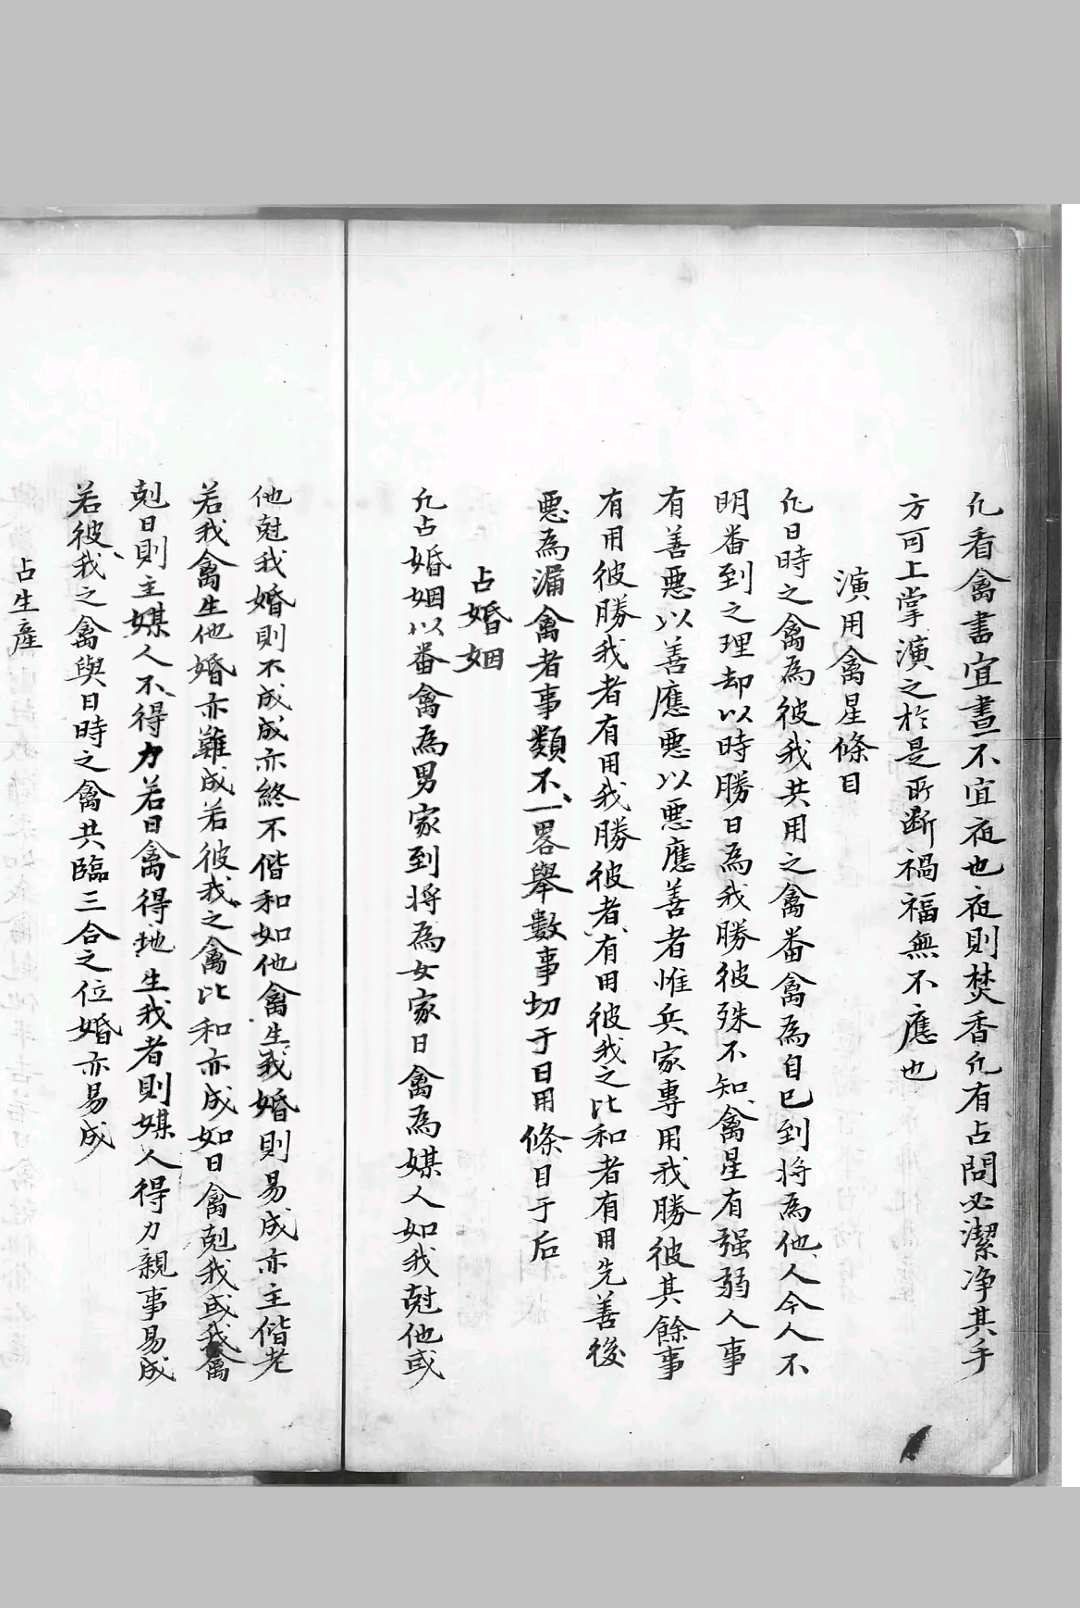 凢看禽書宜晝不宜夜也夜則焚香凢有占問必潔净其手
方可上掌演之於是所断禍福無不應也
演用禽星條目
凢日時之禽為彼我共用之禽番禽為自已到將為他人今人不
明番到之理却以時勝日為我勝彼殊不知禽星有强弱人事
有善惡以善應惡以惡應善者惟兵家專用我勝彼其餘事
有用彼勝我者有用我勝彼者有用彼我之比和者有用先善後
惡為漏禽者事類不一畧舉數事切于日用條目于后
占婚姻
凢占婚姻以番禽為男家到將為女家日禽為媒人如我尅他或
他尅我婚則不成成亦終不偕和如他禽生我婚則易成亦主偕老
若我禽生他婚亦難成若彼我之禽比和亦成如日禽尅我或我禽
尅日則主媒人不得力若日禽得地生我者則媒人得力親事易成
若彼我之禽與日時之禽共臨三合之位婚亦易成
占生產